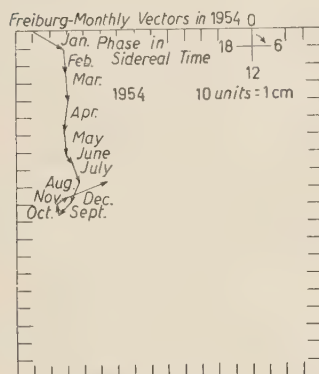 Freiburg-Monthly Vectors in 1954 0
Jan. Phase in 18 6
Feb. Sidereal Time
12
Mar.
1954 10 units = 1cm
Apr.
May
June
July
Aug.
Nov. Dec.
Oct. Sept.